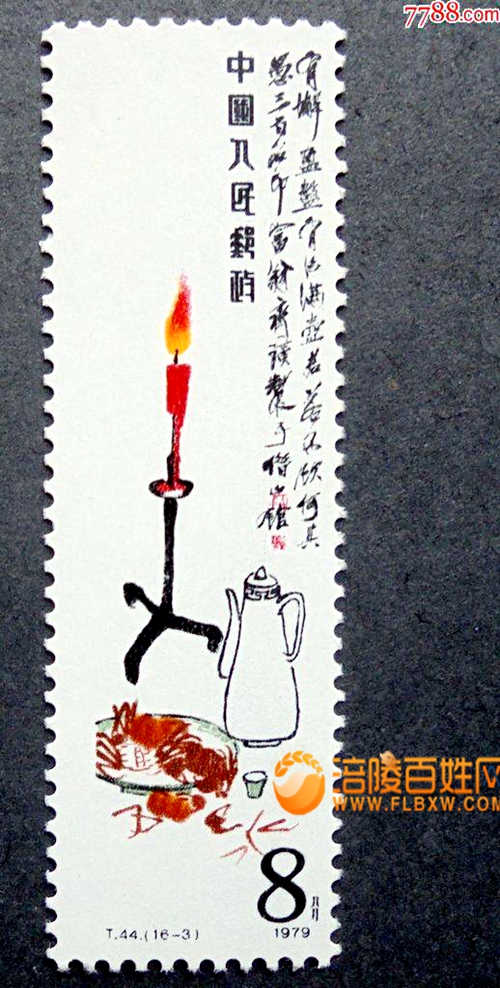 7788.com
有蠏盈盤有酒滿壺君若不飲何其
愚三百石印富翁齊璜製于借山館
中國人民郵政
涪陵百姓网
WWW.FLBXW.COM
8
T.44.(16-3)
1979